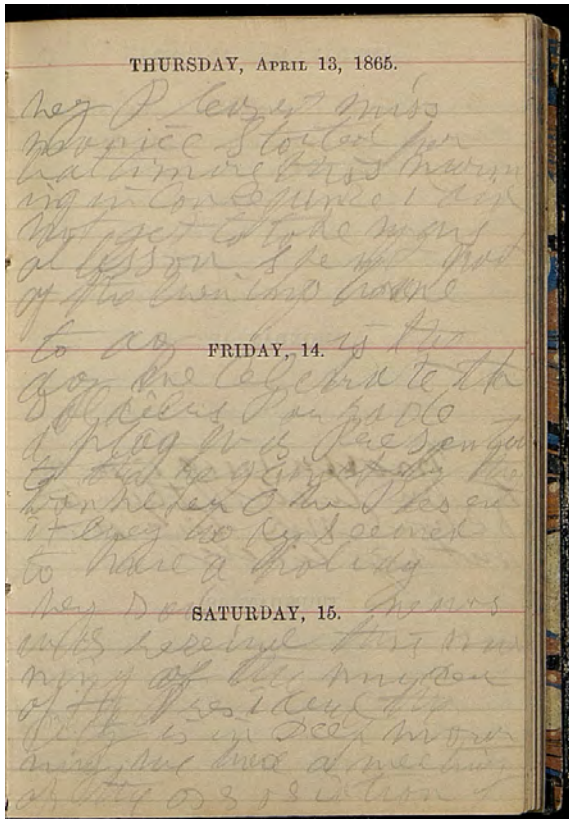 THURSDAY, APRIL 13, 1865.
very Plesent miss
Started for
baltimore this morn
ing in Consequence i did
not get to take my
lesson spent part
of the evening home
FRIDAY, 14.
to day is the
day we Celebrate the
Soldiers Parrade
a flag was Presented
to the regiment by the
Every body seemed
to have a holidy
SATURDAY, 15.
very Sad news
was received this mor
ning of the murder
of the President the
City is in deep mour
ning we had a meeting
of the assosiation